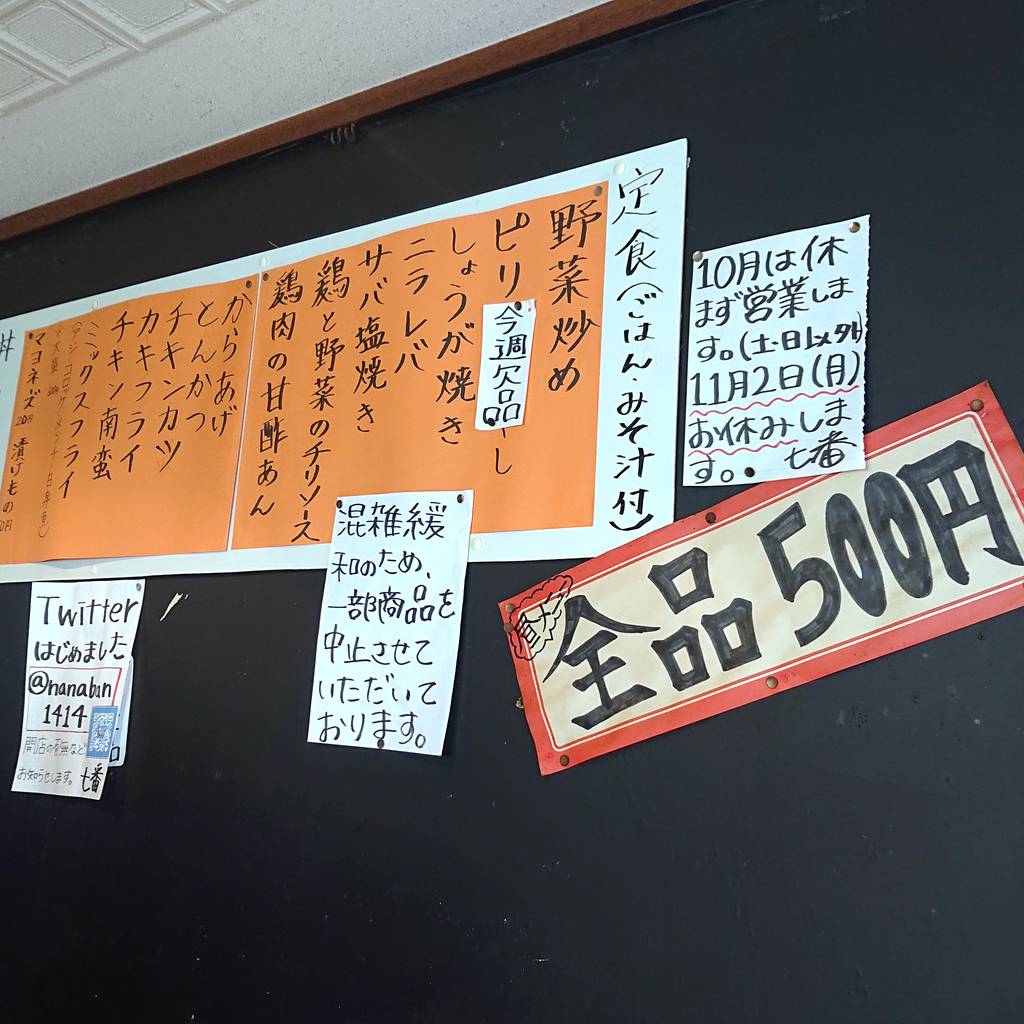 定食(ごはん・みそ汁付)
野菜炒め
ピリ
今週欠品
し
しょうが焼き
ニラレバ
サバ塩焼き
鶏と野菜のチリソース
鶏肉の甘酢あん
からあげ
とんかつ
チキンカツ
カキフライ
チキン南蛮
ミックスフライ
マヨネーズ 20円 漬けもの
丼
10月は休
まず営業しま
す。(土・日以外)
11月2日(月)
お休みしま
す。 七番
全品500円
混雑緩
和のため、
一部商品を
中止させて
いただいて
おります。
Twitter
はじめました
@nanaban
1414
開店の有無など
お知らせします。七番